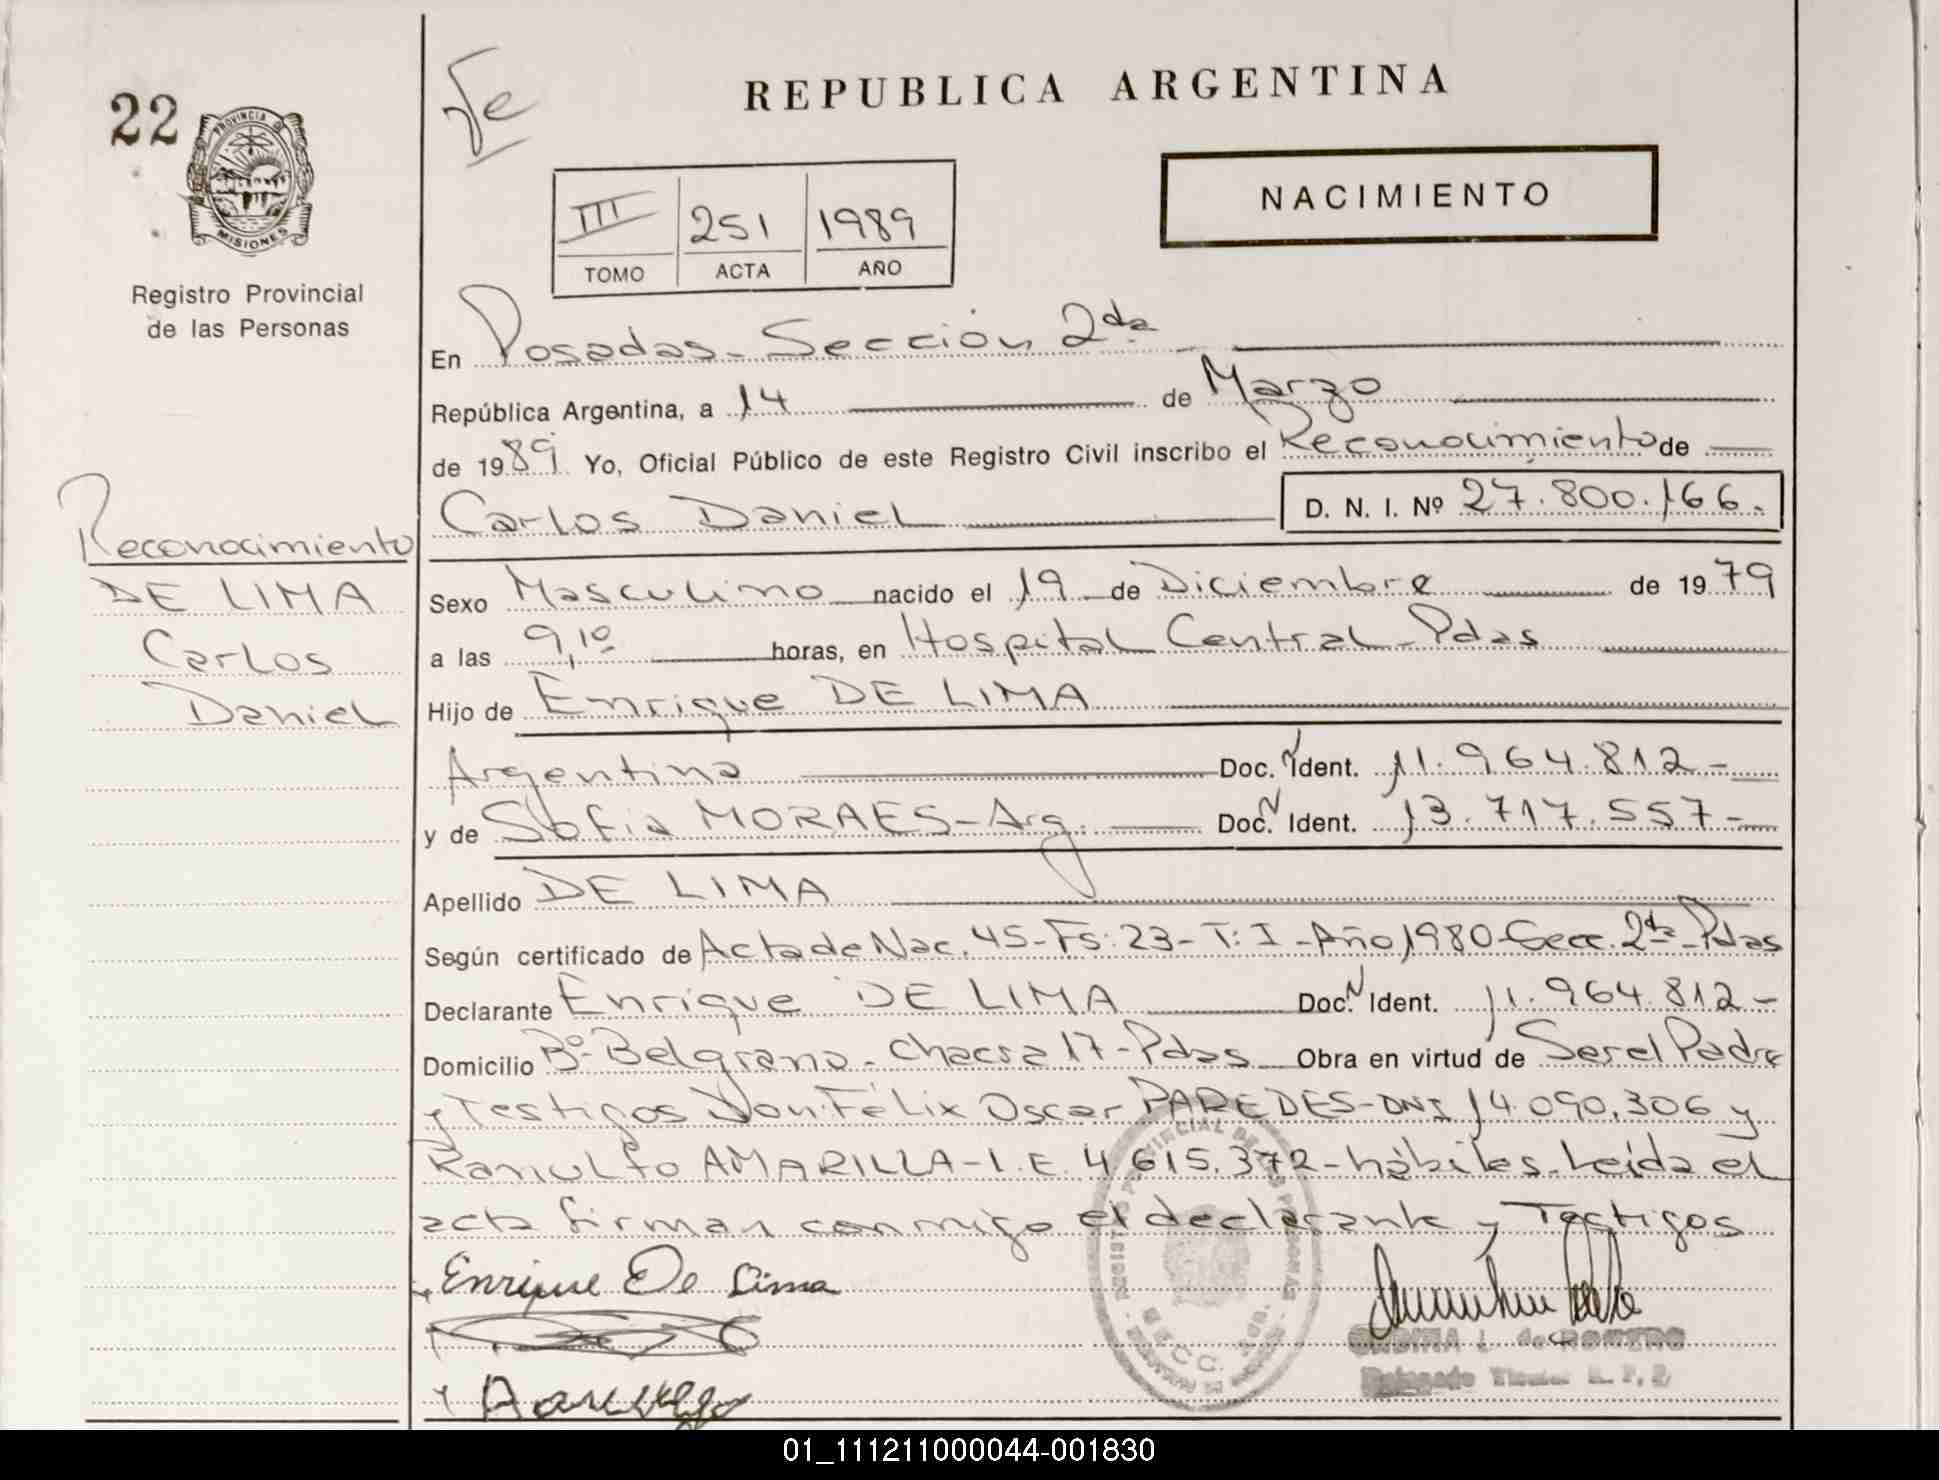 22
Fe
REPUBLICA ARGENTINA
PROVINCIA DE
MISIONES
NACIMIENTO
III 251 1989
TOMO ACTA AÑO
Registro Provincial
de las Personas
En Posadas - Sección 2da
República Argentina, a 14 de Marzo
de 1989 Yo, Oficial Público de este Registro Civil inscribo el Reconocimiento de
Carlos Daniel D. N. I. Nº 27.800.166.
Reconocimiento
DE LIMA
Carlos
Daniel
Sexo Masculino nacido el 19 de Diciembre de 1979
a las 9,10 horas, en Hospital Central - Pdas
Hijo de Enrique DE LIMA
Argentino Doc. Ident. 11.964.812-
y de Sofia MORAES - Arg. Doc. Ident. 13.717.557-
Apellido DE LIMA
Según certificado de Acta de Nac. 45 - Fs: 23 - T: I - Año 1980 - Secc. 2da - Pdas
Declarante Enrique DE LIMA Doc. Ident. 11.964.812-
Domicilio Bº Belgrano - Chacra 17 - Pdas Obra en virtud de Ser el Padre
y Testigos Don: Félix Oscar PAREDES - DNI 14.090.306 y
Ranulfo AMARILLA - L.E. 4.615.372 - hábiles. Leída el
acta firman conmigo el declarante y Testigos
Enrique De Lima
REGISTRO PROVINCIAL DE LAS PERSONAS
de ROMERO
Delegado Titular R. P. P.
01_111211000044-001830